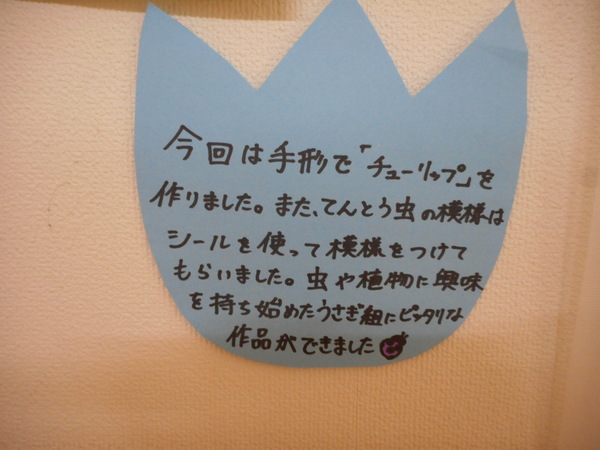 今回は手形で「チューリップ」を
作りました。また、てんとう虫の模様は
シールを使って模様をつけて
もらいました。虫や植物に興味
を持ち始めたうさぎ組にピッタリな
作品ができました